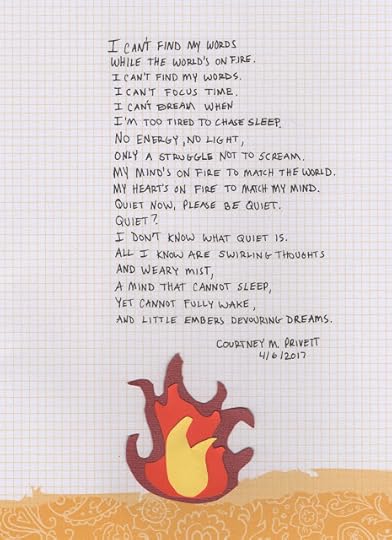 I CAN'T FIND MY WORDS
WHILE THE WORLD'S ON FIRE.
I CAN'T FIND MY WORDS.
I CAN'T FOCUS TIME.
I CAN'T DREAM WHEN
I'M TOO TIRED TO CHASE SLEEP.
NO ENERGY, NO LIGHT,
ONLY A STRUGGLE NOT TO SCREAM.
MY MIND'S ON FIRE TO MATCH THE WORLD.
MY HEART'S ON FIRE TO MATCH MY MIND.
QUIET NOW, PLEASE BE QUIET.
QUIET?
I DON'T KNOW WHAT QUIET IS.
ALL I KNOW ARE SWIRLING THOUGHTS
AND WEARY MIST,
A MIND THAT CANNOT SLEEP,
YET CANNOT FULLY WAKE,
AND LITTLE EMBERS DEVOURING DREAMS.
COURTNEY M. PRIVETT
4/6/2017